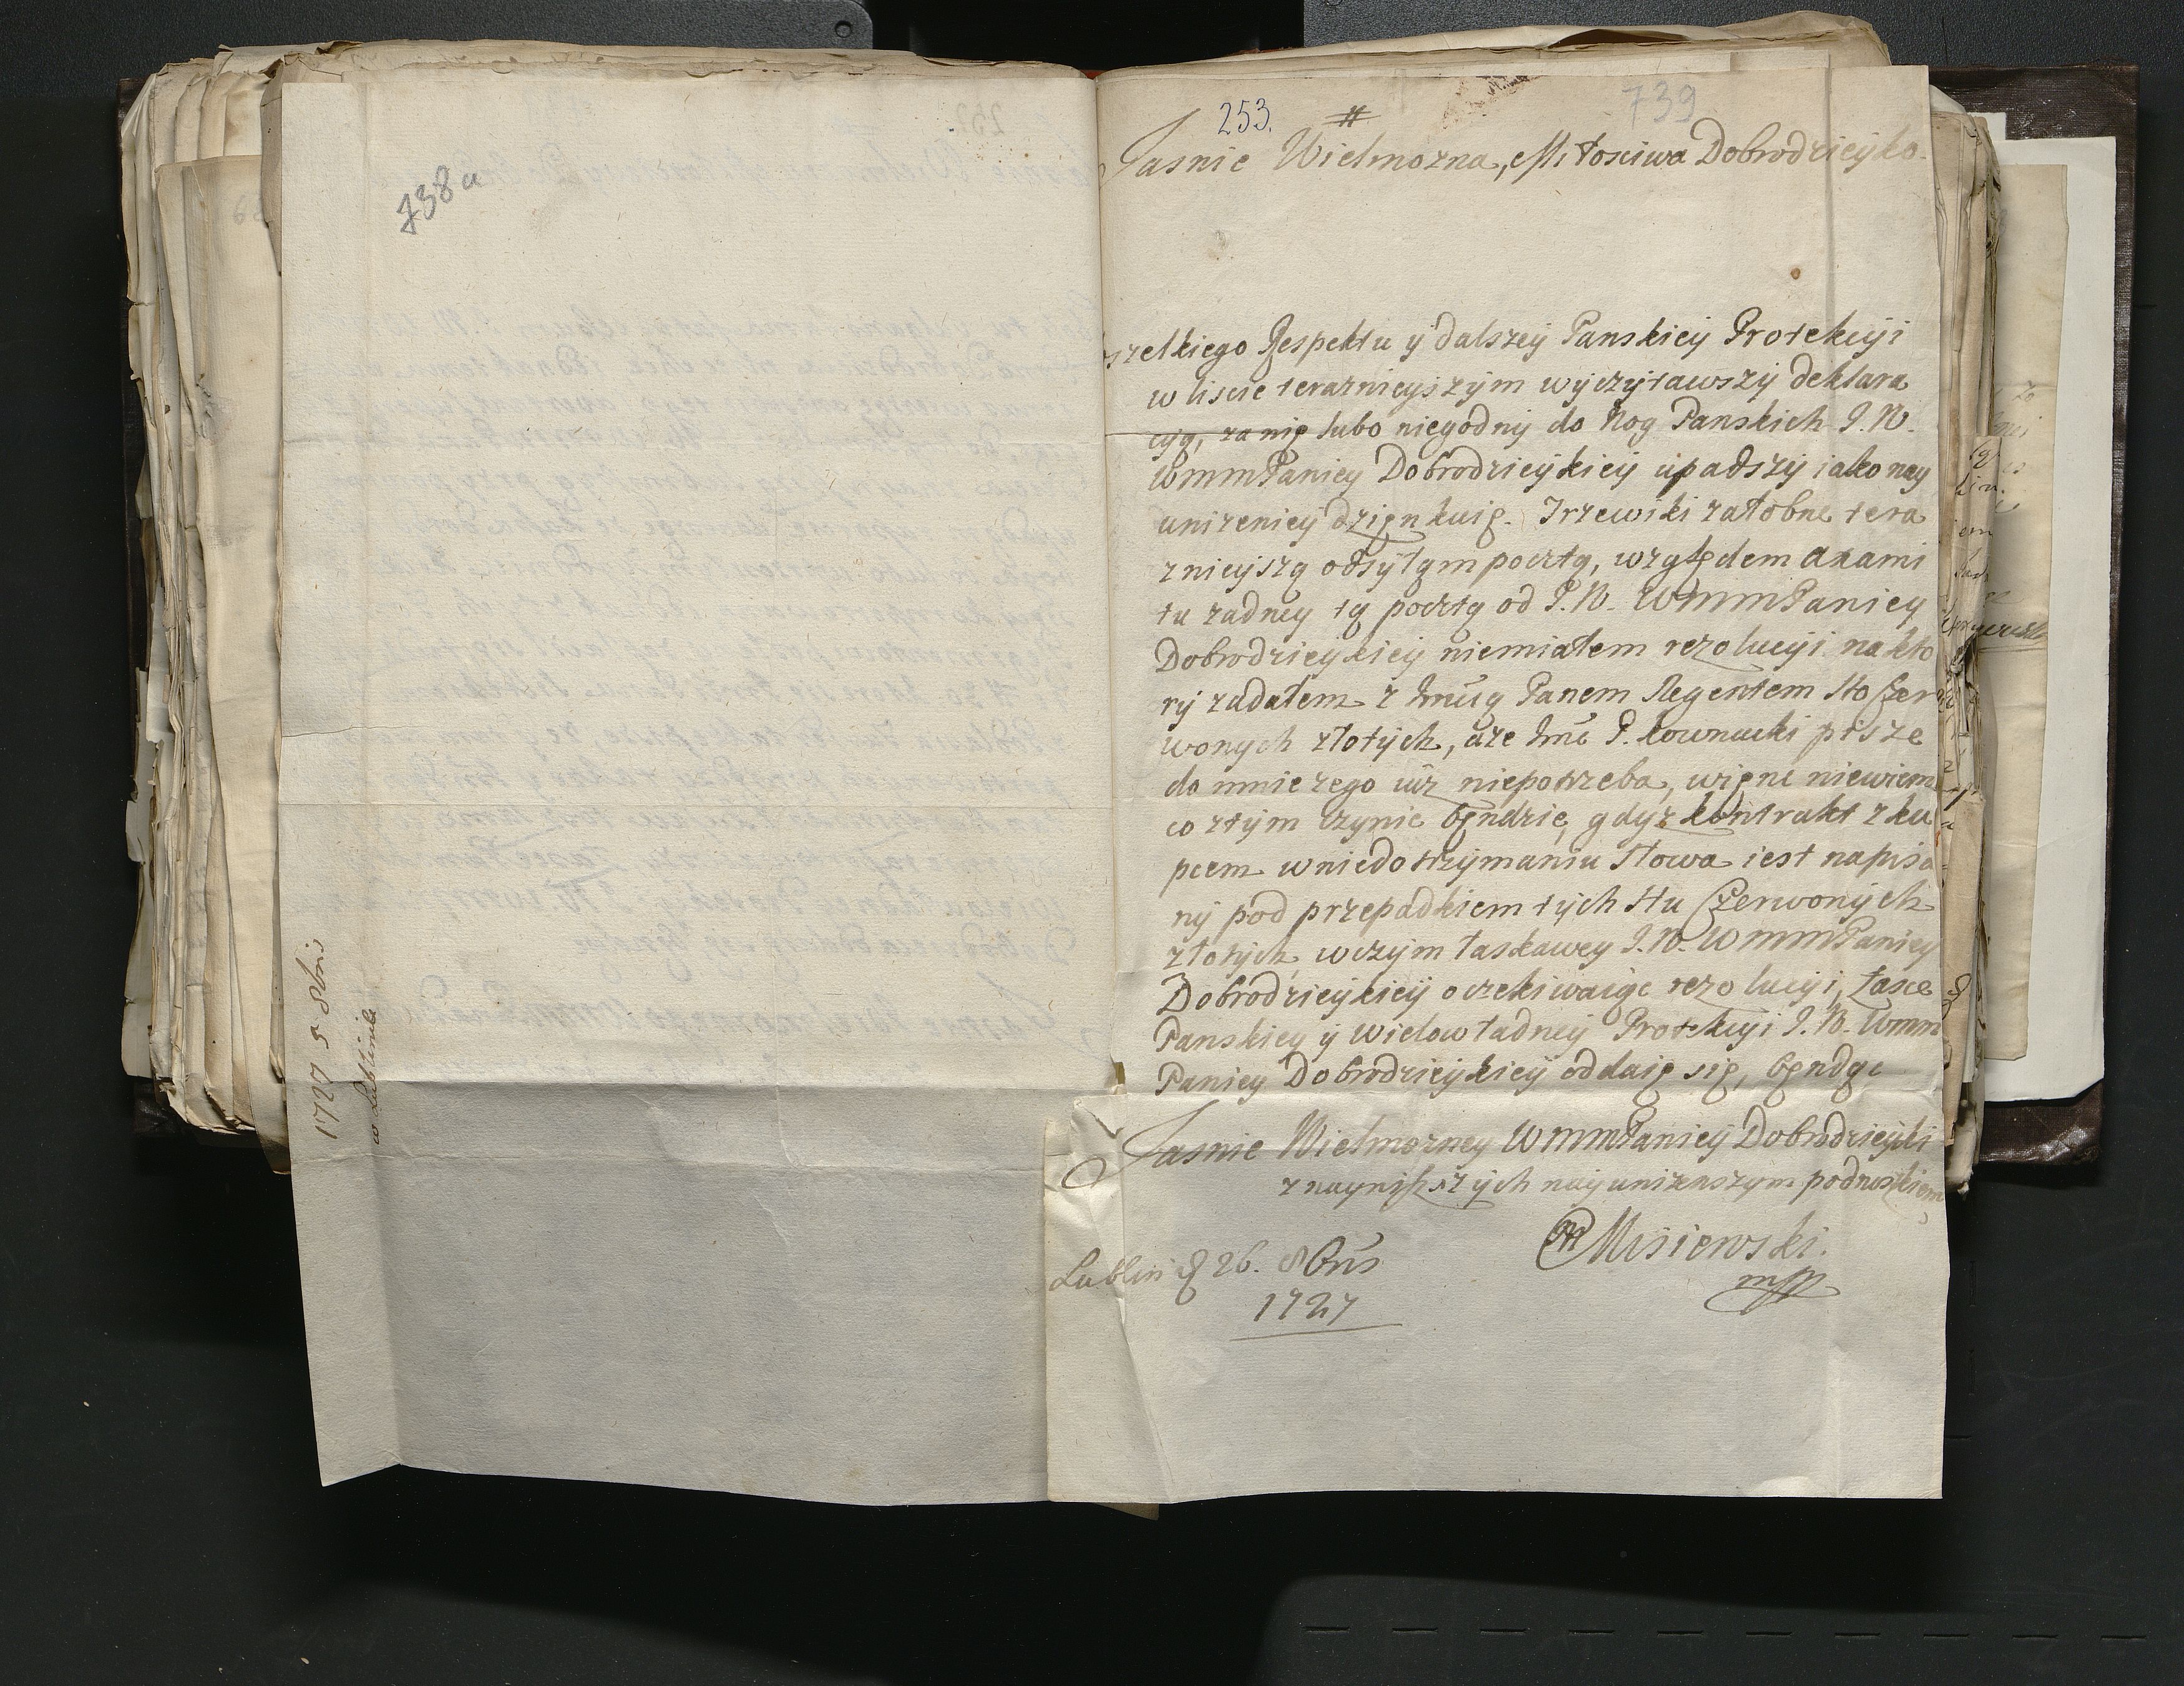 738a
1727 5 8bris
w Lublinie
253. #
739
Jasnie Wielmozna, Miłosciwa Dobrodzieyko.
wszelkiego Respektu ÿ dalszeÿ Panskieÿ Protekcÿi
w liscie teraznieÿszÿm wÿczÿtawszÿ deklara
cÿą, za nię lubo niegodnÿ do Nog Panskich J. W.
WMMPaniey Dobrodzieÿkieÿ upadszÿ iako nay
unizenieÿ dzięnkuię. Trzewiki załobne tera
znieÿszą odsÿłąm pocztą, względem axami
tu zadney tą pocztą od J. W. WMMPaniey
Dobrodzieÿkieÿ niemiałem rezolucÿi na kto
rÿ zadałem z Jmcią Panem Regentem sto Czer
wonych złotÿch, aze Jmć P. Łownicki pisze
do mnie zego iuz niepotrzeba, więnc niewiem
co ztÿm czynic będzie, gdyz kontrakt z ku
pcem w niedotrzÿmaniu słowa iest napisa
nÿ pod przepadkiem tÿch stu Czerwonÿch
złotÿch wczÿm łaskawey J. W. WMMPaniey
Dobrodzieÿkieÿ oczekiwaiąc rezolucÿi, łasce
Panskiey ÿ wielowładneÿ Protekcÿi J. W. WMM
Paniey Dobrodzieÿkieÿ oddaię się, będąc
Jasnie Wielmozney WMMPanieÿ Dobrodzieÿki
z nayniszszÿch naÿunizenszym podnoszkiem
Misiewski.
mpp
Lublin d 26. 8bris
1727